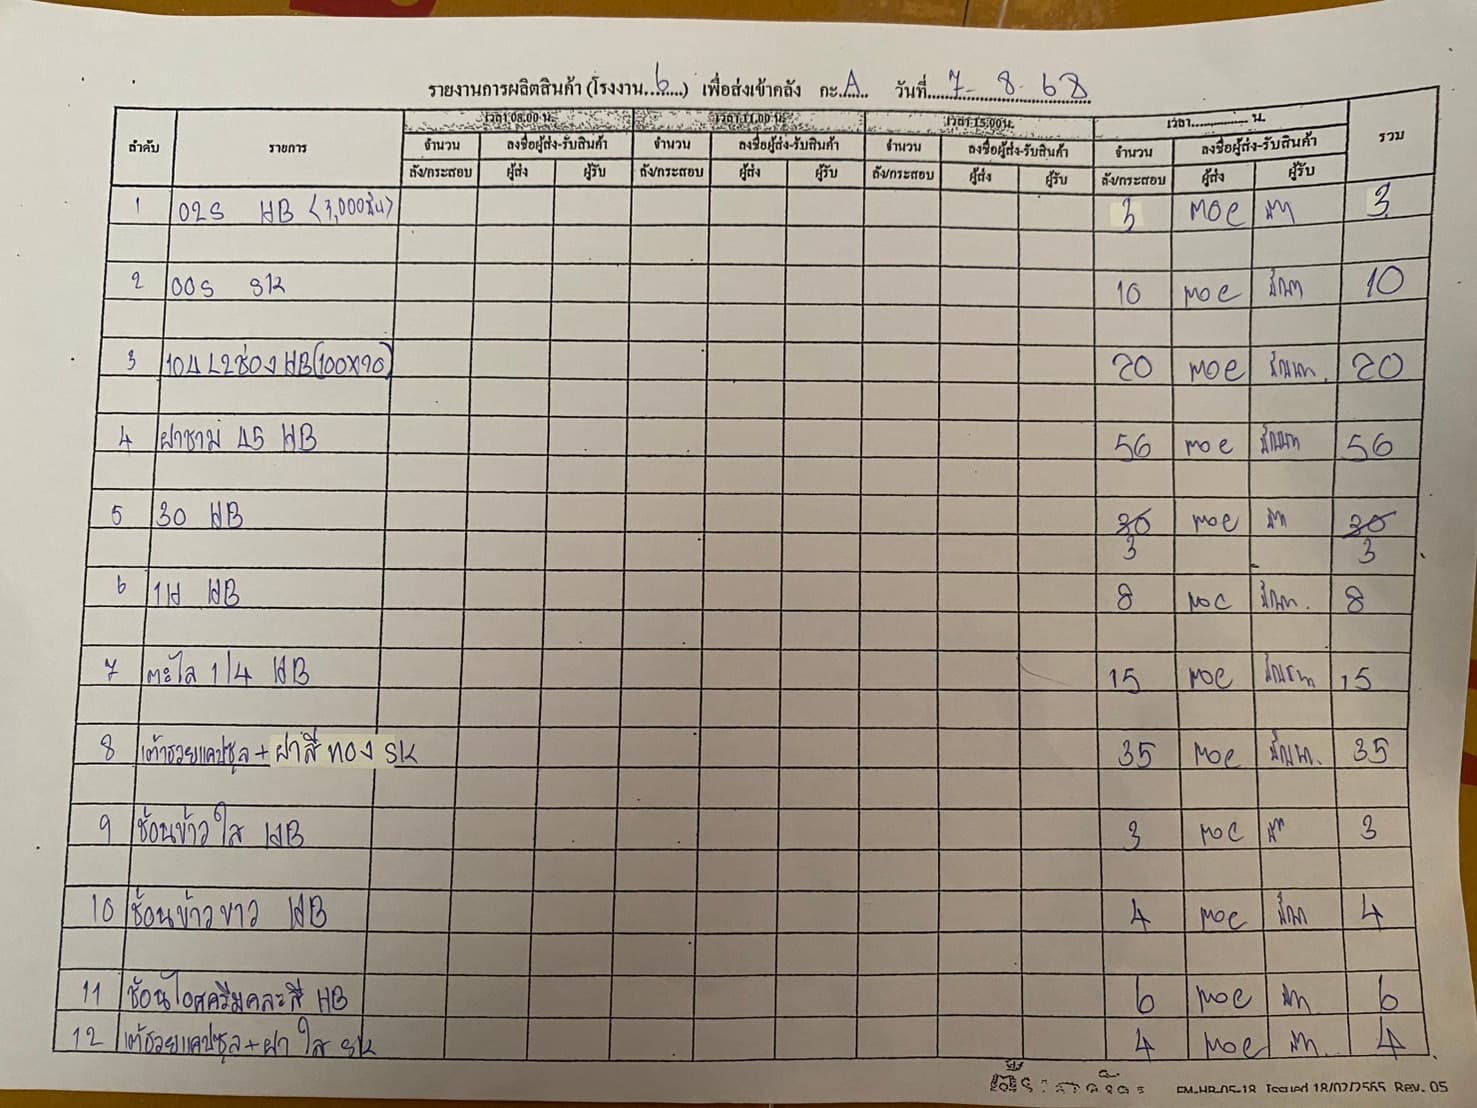 รายงานการผลิตสินค้า (โรงงาน...6...) เพื่อส่งเข้าคลัง กะ.A... วันที่...7-8-68
ลำดับ รายการ เวลา 08.00 น. เวลา 11.00 น. เวลา 15.00 น. เวลา............... น. รวม
จำนวน ลงชื่อผู้ส่ง-รับสินค้า จำนวน ลงชื่อผู้ส่ง-รับสินค้า จำนวน ลงชื่อผู้ส่ง-รับสินค้า จำนวน ลงชื่อผู้ส่ง-รับสินค้า
ถัง/กระสอบ ผู้ส่ง ผู้รับ ถัง/กระสอบ ผู้ส่ง ผู้รับ ถัง/กระสอบ ผู้ส่ง ผู้รับ ถัง/กระสอบ ผู้ส่ง ผู้รับ
1 02S HB (3,000ชิ้น) 3 moe 3
2 00S SK 10 moe 10
3 10A L2ช่อง HB (100x20) 20 moe 20
4 ฝาชาม 45 HB 56 moe 56
5 30 HB 30 moe 30
3 3
6 1H HB 8 moe 8
7 ตะไล 1/4 HB 15 moe 15
8 เต้าฮวยแคปซูล+ฝาสีทอง SK 35 moe 35
9 ช้อนข้าวใส HB 3 moe 3
10 ช้อนข้าวขาว HB 4 moe 4
11 ช้อนไอศครีมคละสี HB 6 moe 6
12 เต้าฮวยแคปซูล+ฝาใส SK 4 moe 4
FM-HB-05-18 Issued 18/02/2565 Rev. 05